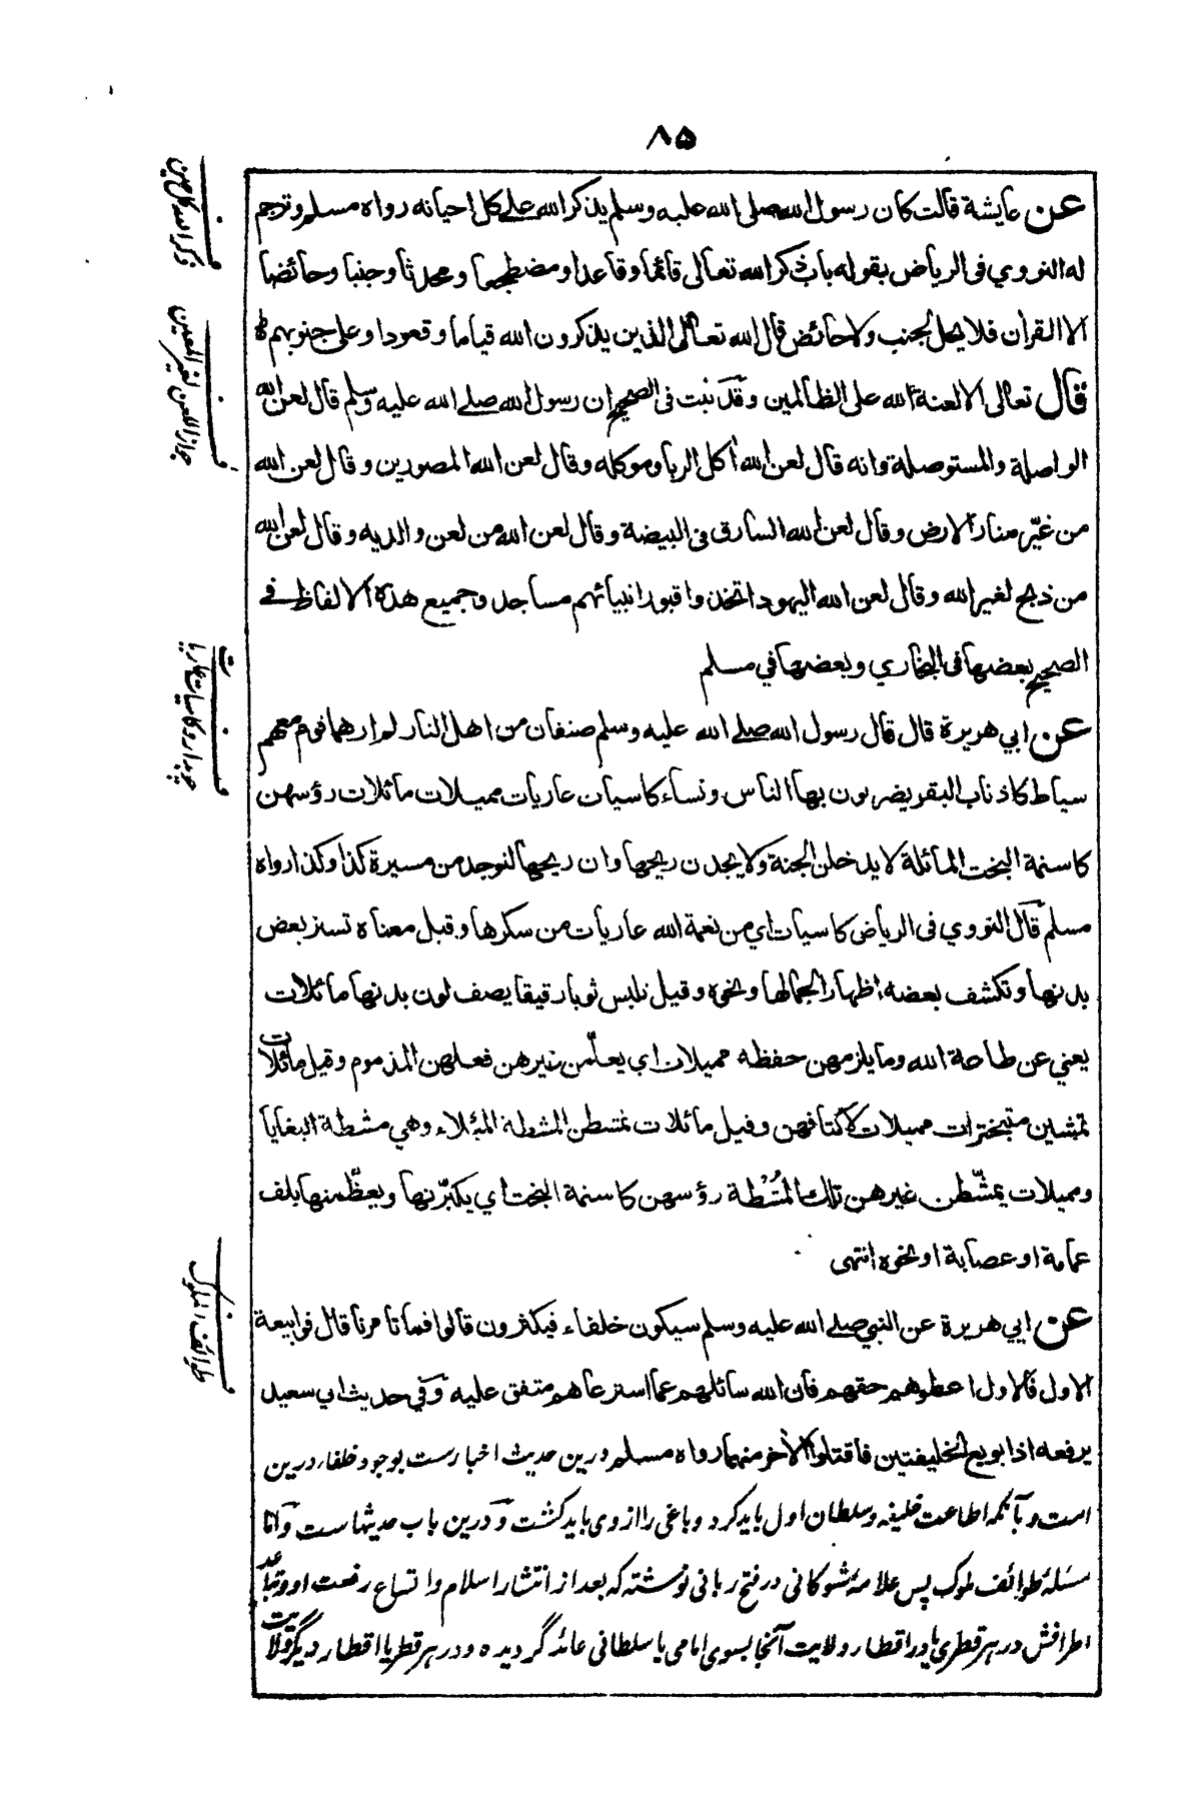 ۸۵
عن عايشة قالت كان رسول الله صلى الله عليه وسلم يذكر الله على كل احيانه رواه مسلم وترجم
له النووي فى الرياض بقوله باب ذكر الله تعالى قائما وقاعدا ومضطجعا ومحدثا وجنبا وحائضا
الا القرآن فلا يحل لجنب ولا حائض قال الله تعالى الذين يذكرون الله قياما وقعودا وعلى جنوبهم
قال تعالى الا لعنة الله على الظالمين وقد ثبت فى الصحيح ان رسول الله صلے الله عليه وسلم قال لعن الله
الواصلة والمستوصلة وانه قال لعن الله آكل الربا وموكله وقال لعن الله المصورين وقال لعن الله
من غيّر منار الارض وقال لعن الله السارق فى البيضة وقال لعن الله من لعن والديه وقال لعن الله
من ذبح لغير الله وقال لعن الله اليهود اتخذوا قبور انبيائهم مساجد وجميع هذه الالفاظ فے
الصحيح بعضها فى البخاري وبعضها في مسلم
عن ابي هريرة قال قال رسول الله صلے الله عليه وسلم صنفان من اهل النار لم ارهما قوم معهم
سياط كاذناب البقر يضربون بها الناس ونساء كاسيات عاريات مميلات مائلات رؤسهن
كاسنمة البخت المائلة لا يدخلن الجنة ولا يجدن ريحها وان ريحها لتوجد من مسيرة كذا وكذا رواه
مسلم قال النووي فى الرياض كاسيات اي من نعمة الله عاريات من شكرها وقيل معناه تستر بعض
بدنها وتكشف بعضه اظهارا لجمالها ونحوه وقيل تلبس ثوبا رقيقا يصف لون بدنها مائلات
يعني عن طاعة الله وما يلزمهن حفظه مميلات اي يعلّمن غيرهن فعلهن المذموم وقيل مائلات
يمشين متبخترات مميلات لاكتافهن وقيل مائلات يمتشطن المشطة الميلاء وهي مشطة البغايا
ومميلات يمشّطن غيرهن تلك المشطة رؤسهن كاسنمة البخت اي يكبّرنها ويعظّمنها بلف
عمامة او عصابة او نحوه انتهى
عن ابي هريرة عن النبي صلے الله عليه وسلم سيكون خلفاء فيكثرون قالوا فما تامرنا قال فوا بيعة
الاول فالاول اعطوهم حقهم فان الله سائلهم عما استرعاهم متفق عليه وفي حديث ابي سعيد
يرفعه اذا بويع لخليفتين فاقتلوا الآخر منهما رواه مسلم درين حديث اخبارست بوجود خلفا، درين
است و بآنكه اطاعت خليفه و سلطان اول بايد كرد و باغى را از وى بايد كشت و درين باب حديثهاست و اما
مسئله طوائف ملوك پس علامه شوكانى در فتح ربانى نوشته كه بعد از انتشار اسلام و اتساع رقعت او و تباعد
اطرافش در هر قطرى يا در اقطار ولايت آنجا بسوى امامى يا سلطانى عائد گرديده و در هر قطر يا اقطار ديگر ولايت
ف ذكر الله كل حين
ف جواز اللعن لغير المعين
ف چوبدار و كاسيات عاريات
ف طوائف الملوك